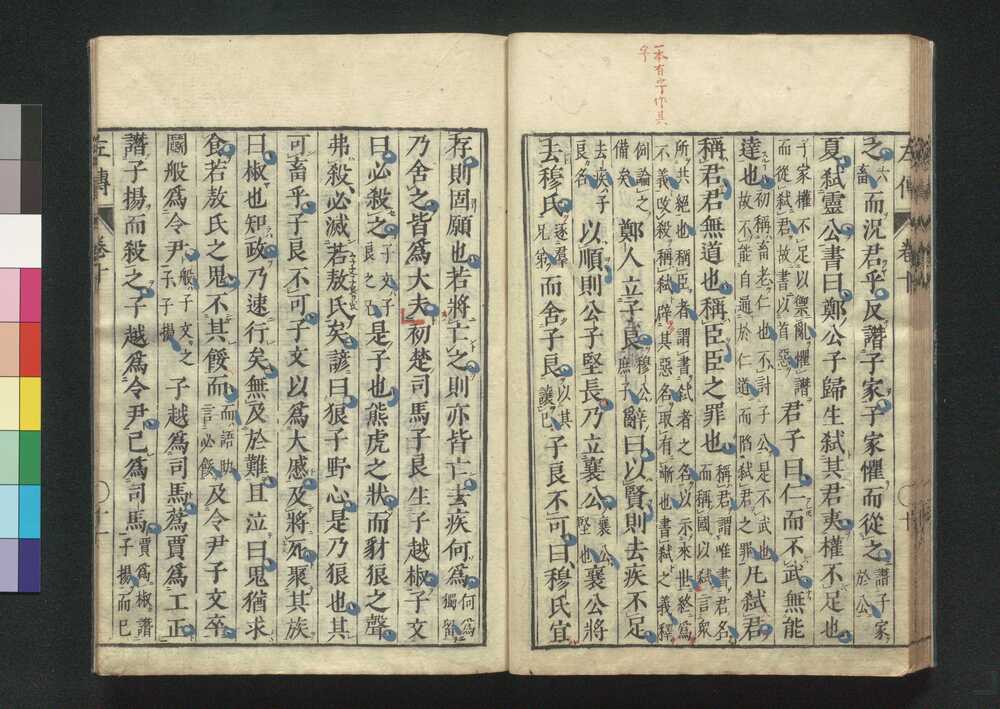 一本有字作具
之六畜而況君乎反譖子家子家懼而從之譖子家於公
夏弑靈公書曰鄭公子歸生弑其君夷權不足也
子家權不足以禦亂懼譖而從弑君故書以首惡君子曰仁而不武無能
達也初稱畜老仁也不討子公是不武也故不能自通於仁道而陷弑君之罪凡弑君
稱君君無道也稱臣臣之罪也稱君謂唯書君名而稱國以弑言衆
所共絶也稱臣者謂書弑者之名以示來世終爲不義改殺稱弑辟其惡名取有漸也書弑之義釋
例論之備矣鄭人立子良穆公庶子辭曰以賢則去疾不足
去疾子良名以順則公子堅長乃立襄公襄公堅也襄公將
去穆氏逐群兄弟而舍子良以其讓己子良不可曰穆氏宜
左傳 卷十
存則固願也若將亡之則亦皆亡去疾何爲何爲獨留
乃舍之皆爲大夫初楚司馬子良生子越椒子文
曰必殺之子文子良之兄是子也熊虎之狀而豺狼之聲
弗殺必滅若敖氏矣諺曰狼子野心是乃狼也其
可畜乎子良不可子文以爲大慼及將死聚其族
曰椒也知政乃速行矣無及於難且泣曰鬼猶求
食若敖氏之鬼不其餒而而語助言必餒及令尹子文卒
鬭般爲令尹般子文之子子揚子越爲司馬蔿賈爲工正
譖子揚而殺之子越爲令尹己爲司馬賈爲椒譖子揚而已
左傳 卷十